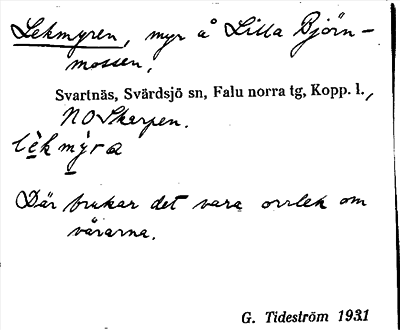 Lekmyren, myr å Lilla Björn-
mossen,
Svartnäs, Svärdsjö sn, Falu norra tg, Kopp. l.,
NO Skarpen.
lè̠k mỳ̠ra
Där brukar det vara orrlek om
vårarna.
G. Tideström 1931